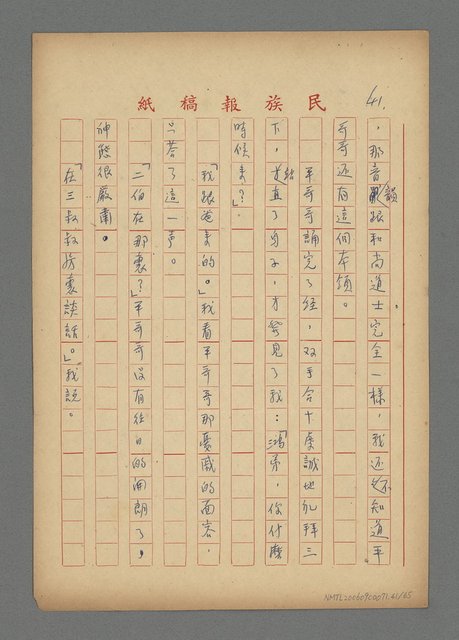 民族報稿紙
41.
，那音韻跟和尚道士完全一樣，我还不知道平
哥哥还有這個本領。
平哥哥誦完了经，双手合十虔誠地礼拜三
下，站直了身子，才發見了我：「鴻弟，你什麼
時候来？」。
「我跟爸来的。」我看平哥哥那憂戚的面容，
只答了這一声。
「二伯在那裏？」平哥哥没有往日的開朗了，
神態很嚴肅。
「在三叔叔房裏談話。」我說。
NMTL20060900071.41/65